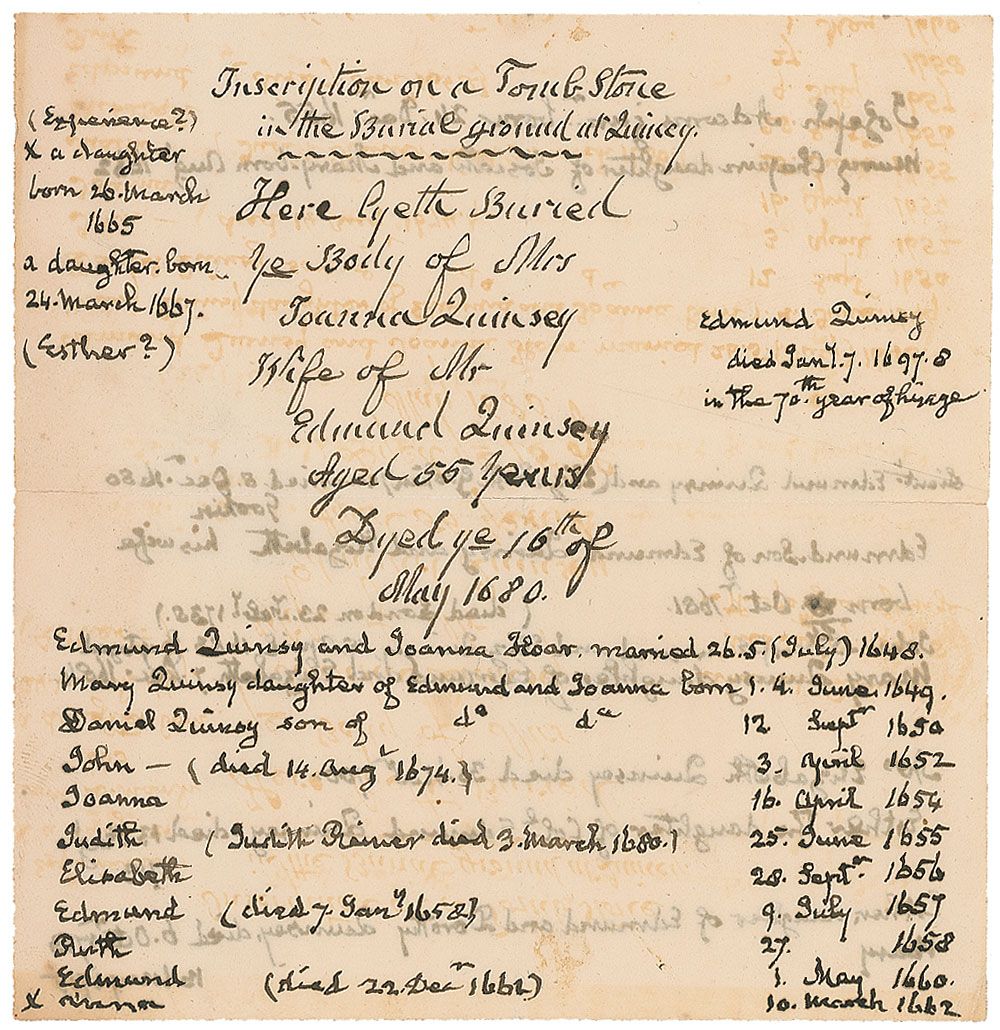 Inscription on a Tomb Stone
in the Burial ground at Quincy.
(Experience?)
x a daughter
born 26. March
1665
a daughter. born
24. March 1667.
(Esther?)
Here lyeth Buried
ye Body of Mrs
Joanna Quinsey
Wife of Mr
Edmund Quinsey
Aged 55 Years
Dyed ye 16th of
May 1680.
Edmund Quinsy
died Jany. 7. 1697.8
in the 70.th year of his age
Edmund Quinsy and Joanna Hoar. married 26. 5. (July) 1648.
Mary Quinsy daughter of Edmund and Joanna born 1. 4. June. 1649.
Daniel Quinsy son of do do 12. Septr 1650
John — (died 14. Augt 1674.) 3. April 1652
Joanna 16. April 1654
Judith (Judith Rainer died 3. March 1680.) 25. June 1655
Elisabeth 28. Septr. 1656
Edmund (died 7. Jany 1658) 9. July 1657
Ruth 27. 1658
Edmund (died 22. Decr 1661) 1. May 1660.
x 10. March 1662